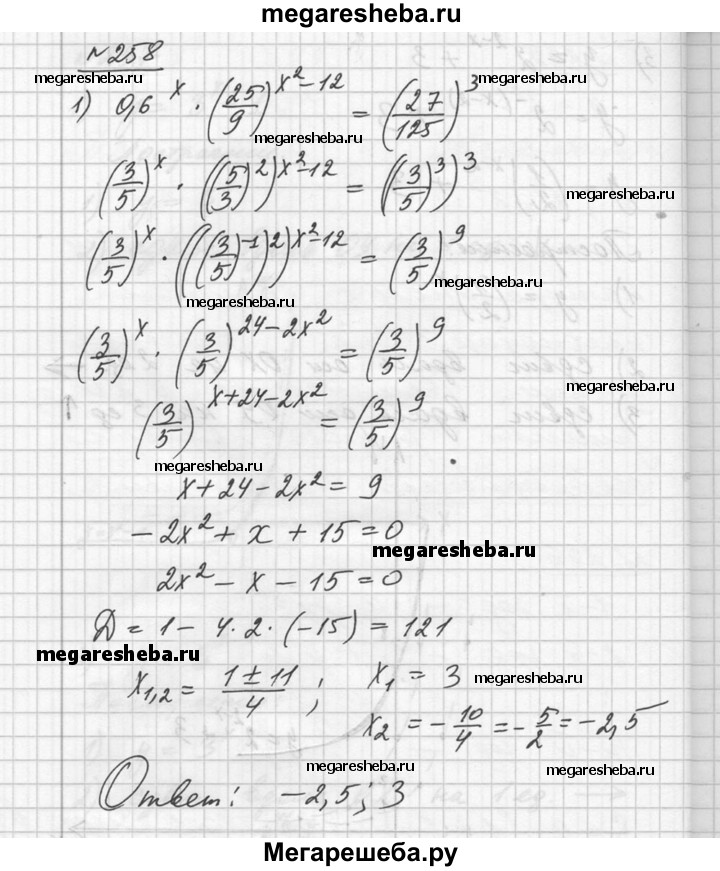 megaresheba.ru
№258
megaresheba.ru megaresheba.ru
1) 0,6^x · (25/9)^(x²−12) = (27/125)^3
megaresheba.ru megaresheba.ru
(3/5)^x · ((5/3)^2)^(x²−12) = ((3/5)^3)^3
megaresheba.ru
(3/5)^x · (((3/5)^−1)^2)^(x²−12) = (3/5)^9
megaresheba.ru megaresheba.ru
(3/5)^x · (3/5)^(24−2x²) = (3/5)^9
megaresheba.ru megaresheba.ru
(3/5)^(x+24−2x²) = (3/5)^9
megaresheba.ru
x+24−2x² = 9
−2x²+x+15=0
megaresheba.ru
2x²−x−15=0
Д = 1− 4·2·(−15) = 121
megaresheba.ru
x1,2 = (1±11)/4 ; x1 = 3 megaresheba.ru
x2 = −10/4 = −5/2 = −2,5
megaresheba.ru megaresheba.ru
Ответ: −2,5; 3
Мегарешеба.ру